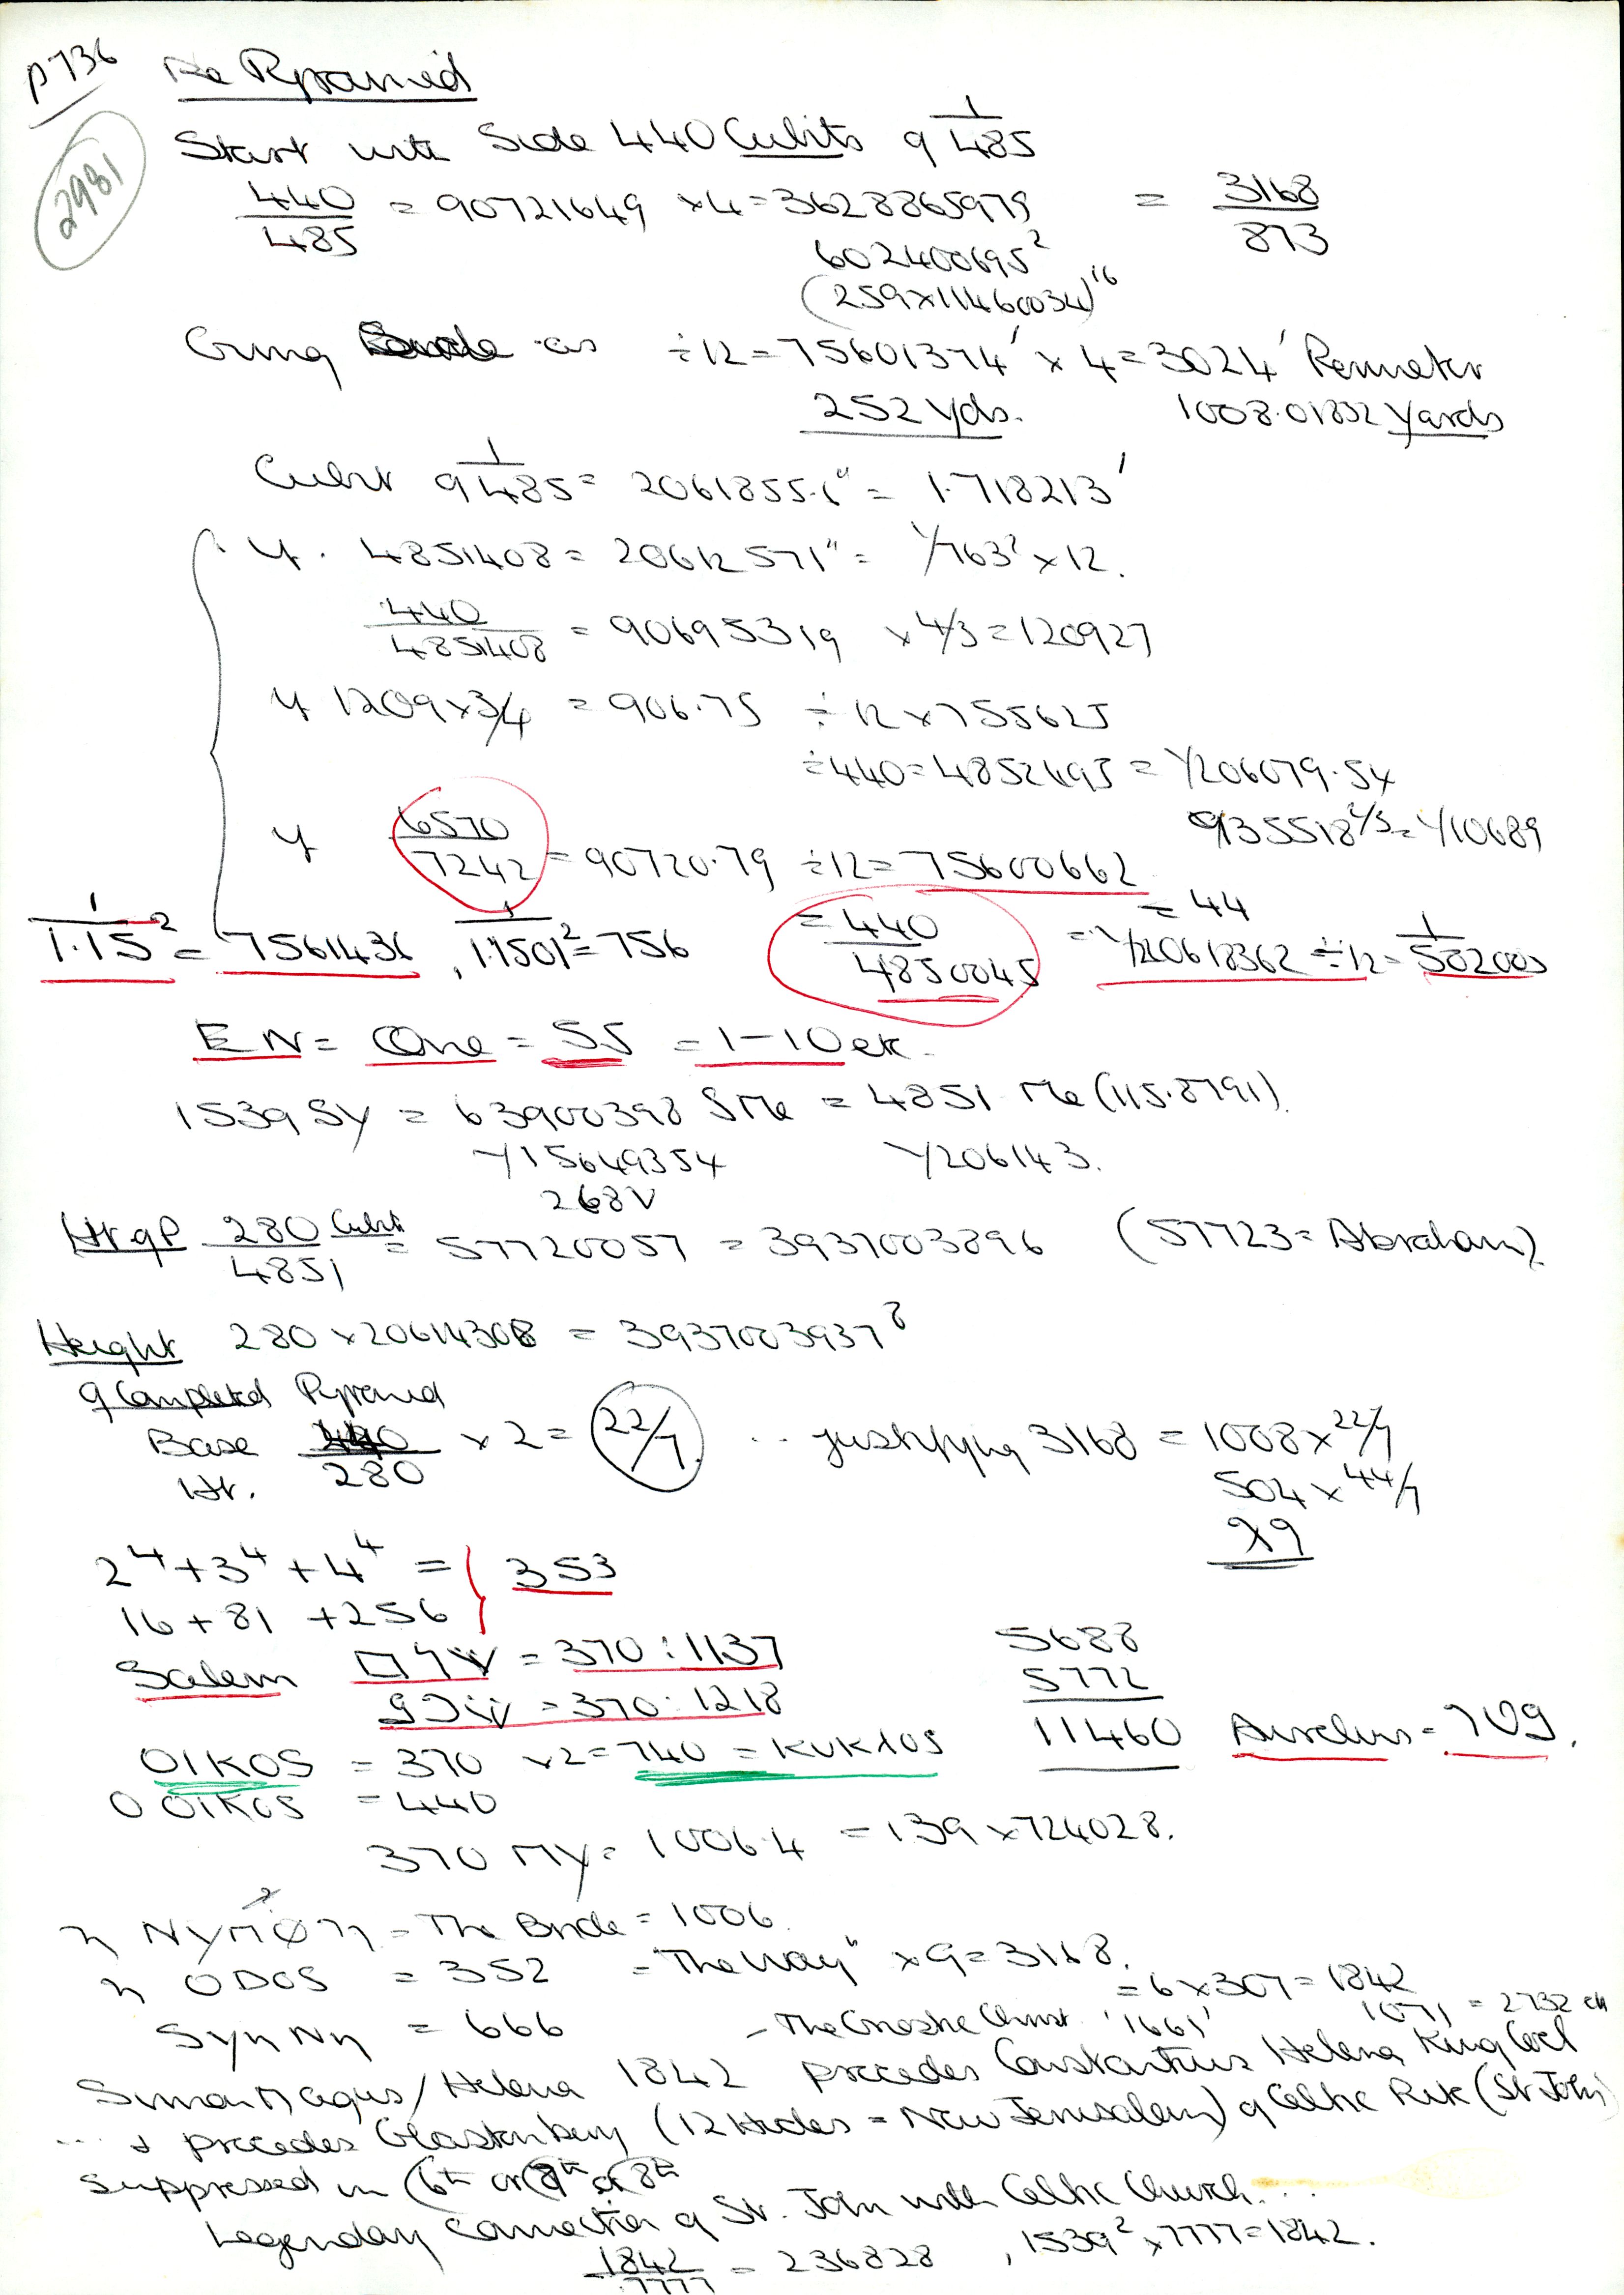 p736
Re Pyramid
2981
Start with Side 440 Cubits of 1/485
440/485 = 90721649 × 4 = 3628865979 = 3168/873
602400695²
(259×11460034)¹⁶
Giving as ÷12 = 75601374' × 4 = 3024' Perimeter
252 Yds. 1008.01832 Yards
Cubit of 1/485 = 2061855.6" = 1.718213'
If . 4851408 = 20612571" = 1/763² × 12.
440/4851408 = 90695319 × 4/3 = 120927
If 1209×3/4 = 906.75 ÷ 12 × 755625
÷440 = 4852495 = 1/206079.54
935518^1/3 = 1/10689
If 6570/7242 = 90720.79 ÷12 = 75600662
1/1.15² = 7561436 , 1/1.1501² = 756 = 440/4850045 = 44/120618362 ÷12 = 1/582003
EN = One = 55 = 1–10 etc.
1539 SY = 63900398 SMe = 4851 Me (115.8791).
1/15649354 1/206143.
268V
Ht of P 280 Cubits/4851 = 57720057 = 3937003896 (57723 = Abraham).
Height 280 × 20614308 = 3937003937⁸
of Completed Pyramid
Base 440/280 × 2 = 22/7 .. justifying 3168 = 1008 × 22/7
Ht. 504 × 44/7
×9
2⁴ + 3⁴ + 4⁴ = } 353
16 + 81 + 256
Salem = 370 : 1137 5688
= 370 : 1218 5772
OIKOS = 370 ×2 = 740 = KUKλOS 11460 Aurelius = 709.
O OIKOS = 440
370 MY = 1006.4 = 139 × 724028.
η NYMΦη – The Bride = 1006.
η ODOS = 352 = "The Way" × 9 = 3168.
= 6 × 307 = 1842
SYηNη = 666 – The Gnostic Christ '1661' 1071 = 2732 etc
Simon Magus / Helena 1842 precedes Constantius Helena King Coel
... & precedes Glastonbury (12 Hides = New Jerusalem) of Celtic Rite (St John)
suppressed in (6th or (7th or (8th
Legendary connection of St. John with Celtic Church...
1842/.7777 = 236828 , 1539² × 7777 = 1842.